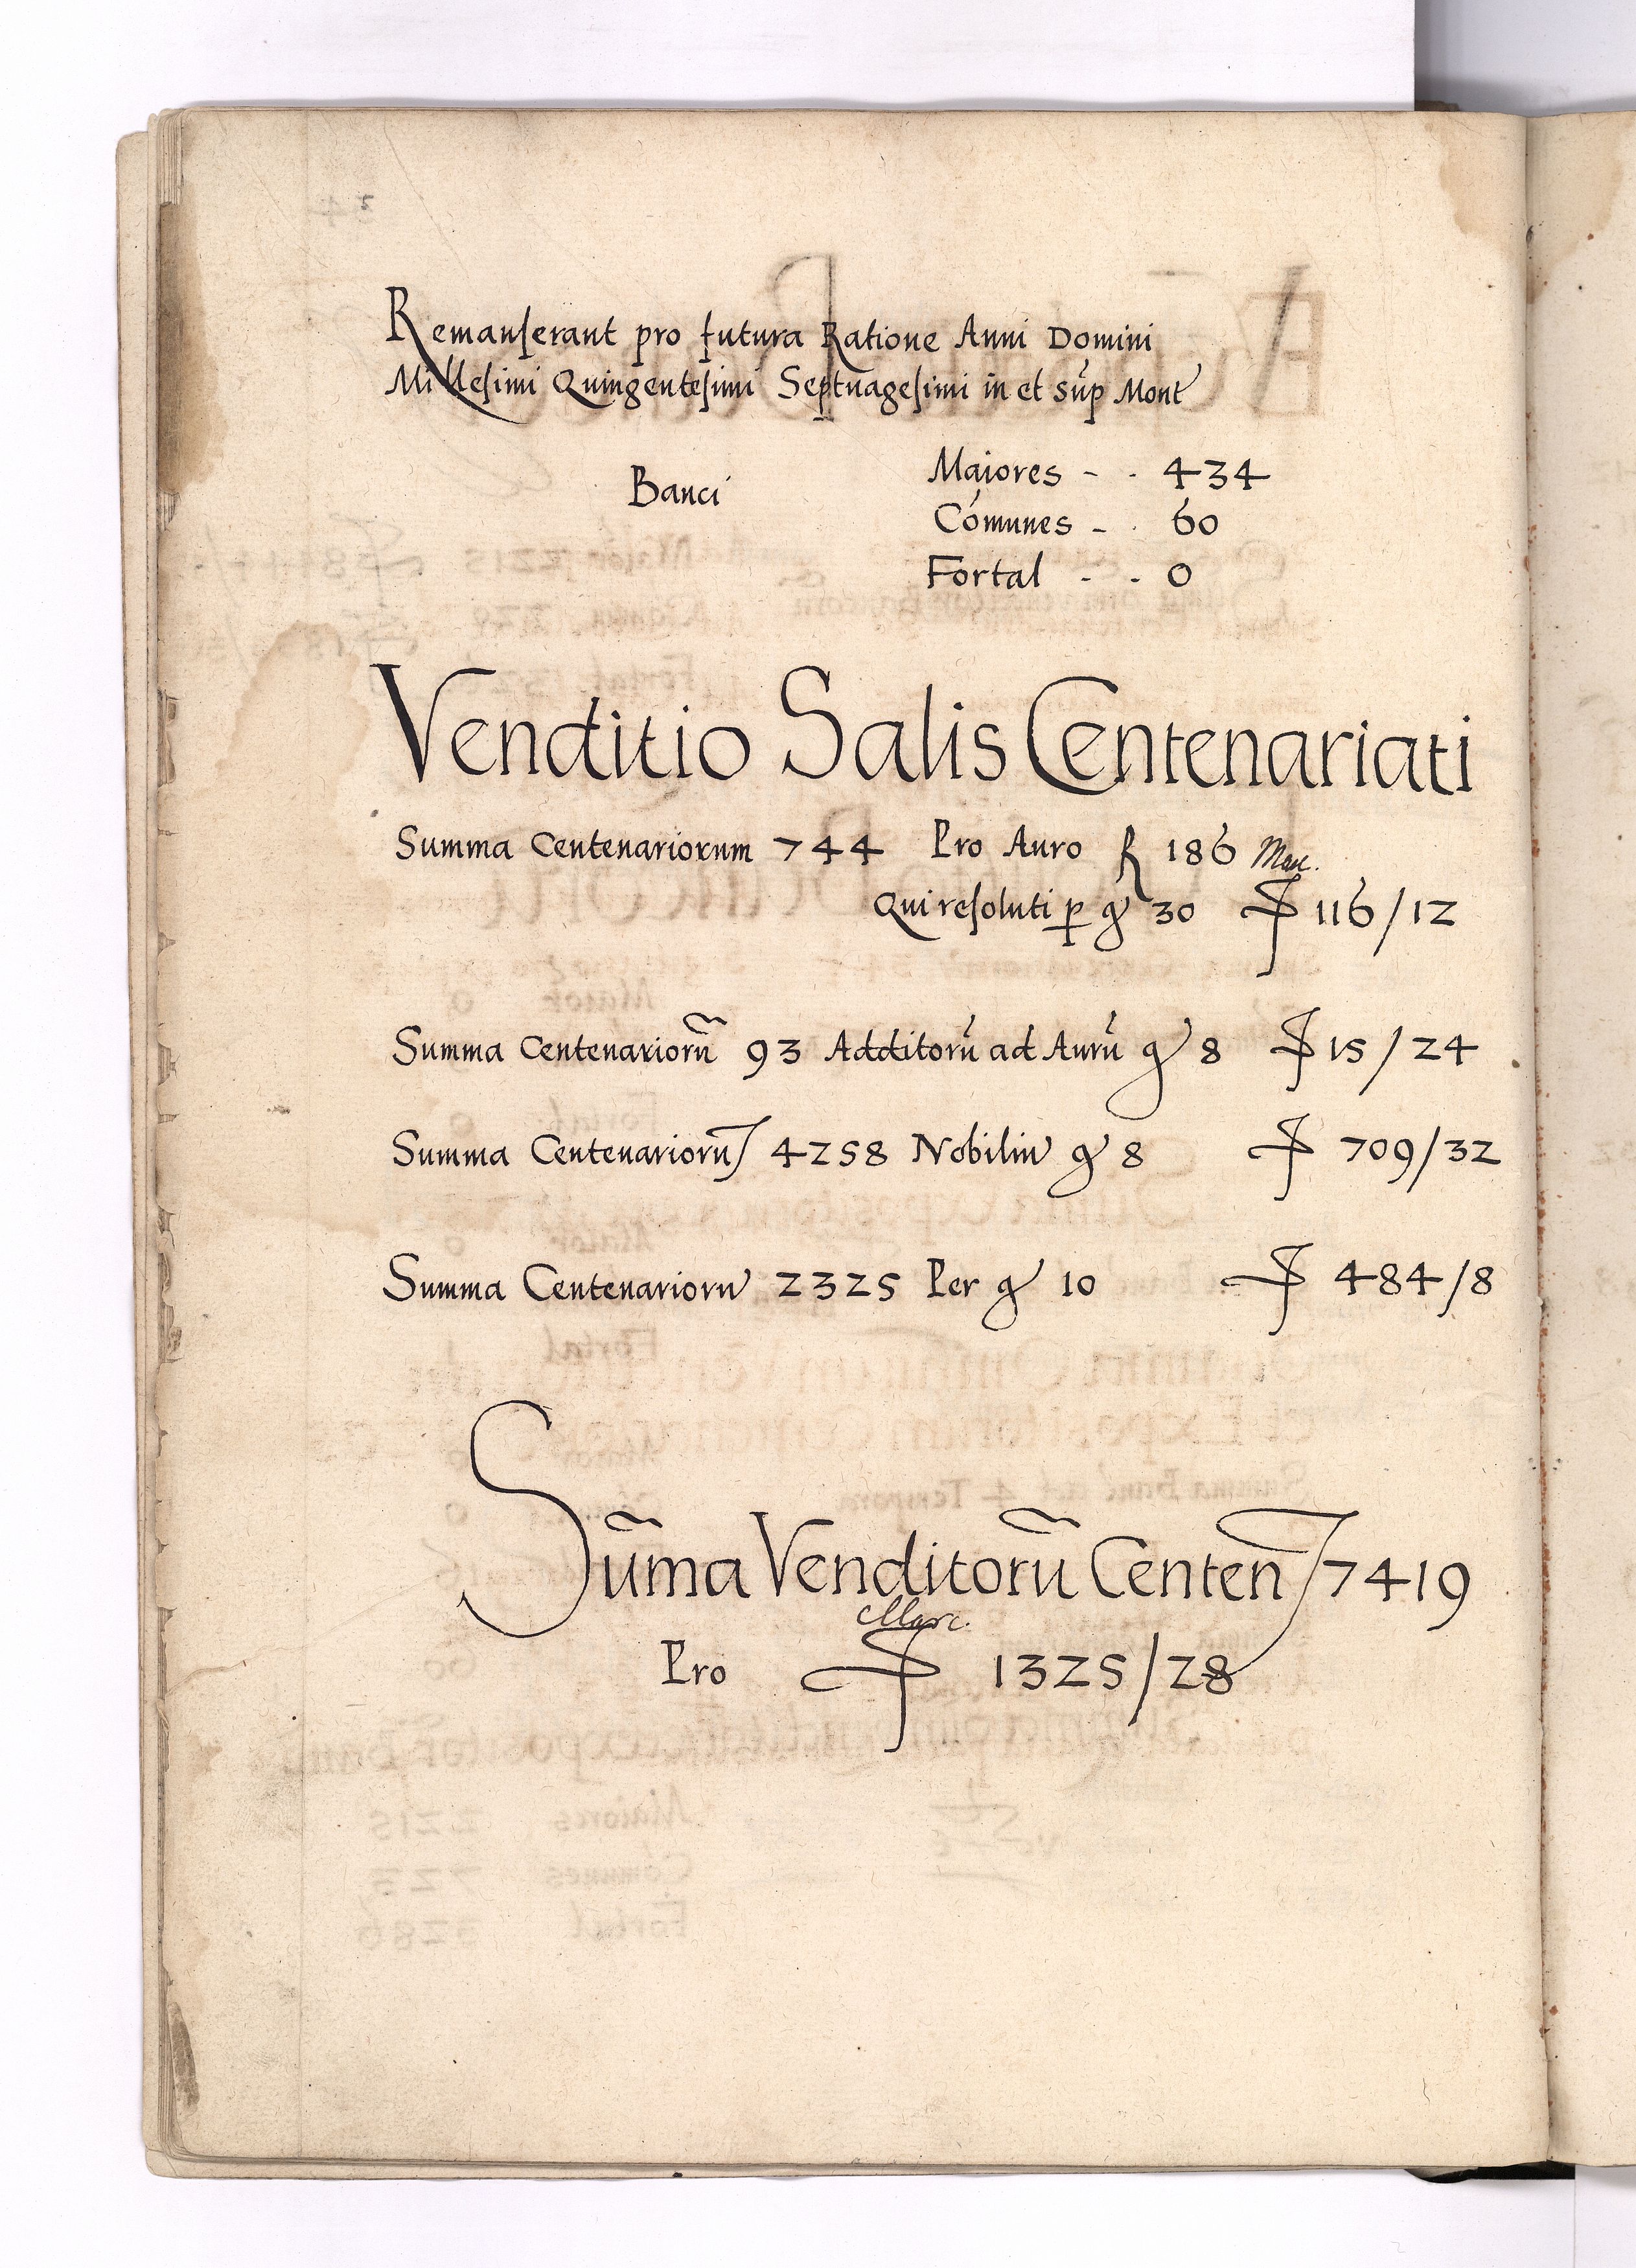 Remanserant pro futura Ratione Anni Domini
Millesimi Quingentesimi Septuagesimi in et sup Mont
Banci
Maiores - - 434
Comunes - . 60
Fortal - - 0
Venditio Salis Centenariati
Summa Centenariorum 744 Pro Auro R 186 Marc.
Qui resoluti p gͬ 30 116/12
Summa Centenariorũ 93 Additorũ ad Aurũ gͬ 8 15/24
Summa Centenariorũ 4258 Nobiliũ gͬ 8 709/32
Summa Centenariorũ 2325 Per gͬ 10 484/8
Sũma Venditorũ Centen 7419
Marc.
Pro 1325/28